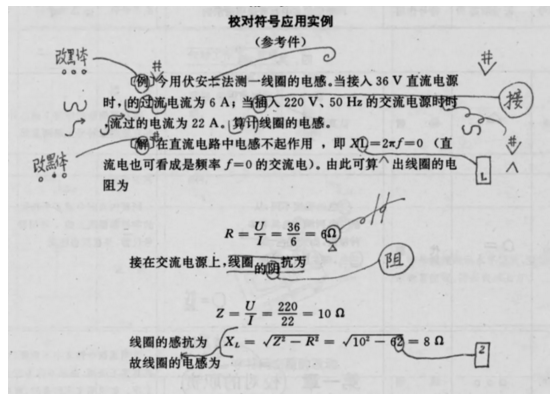 校对符号应用实例
(参考件)
改黑体
#
#
〔例〕今用伏安法测一线圈的电感。当接入 36 V 直流电源
时，的过流电流为 6 A；当插入 220 V、50 Hz 的交流电源时时
接
流过的电流为 22 A。算计线圈的电感。
#
改黑体
〔解〕在直流电路中电感不起作用，即 XL=2πf=0（直
流电也可看成是频率 f=0 的交流电）。由此可算出线圈的电
L
阻为
R = U/I = 36/6 = 6Ω
接在交流电源上，线圈的阴抗为
阻
Z = U/I = 220/22 = 10 Ω
线圈的感抗为 X_L = √Z² − R² = √10² − 62 = 8 Ω
2
故线圈的电感为